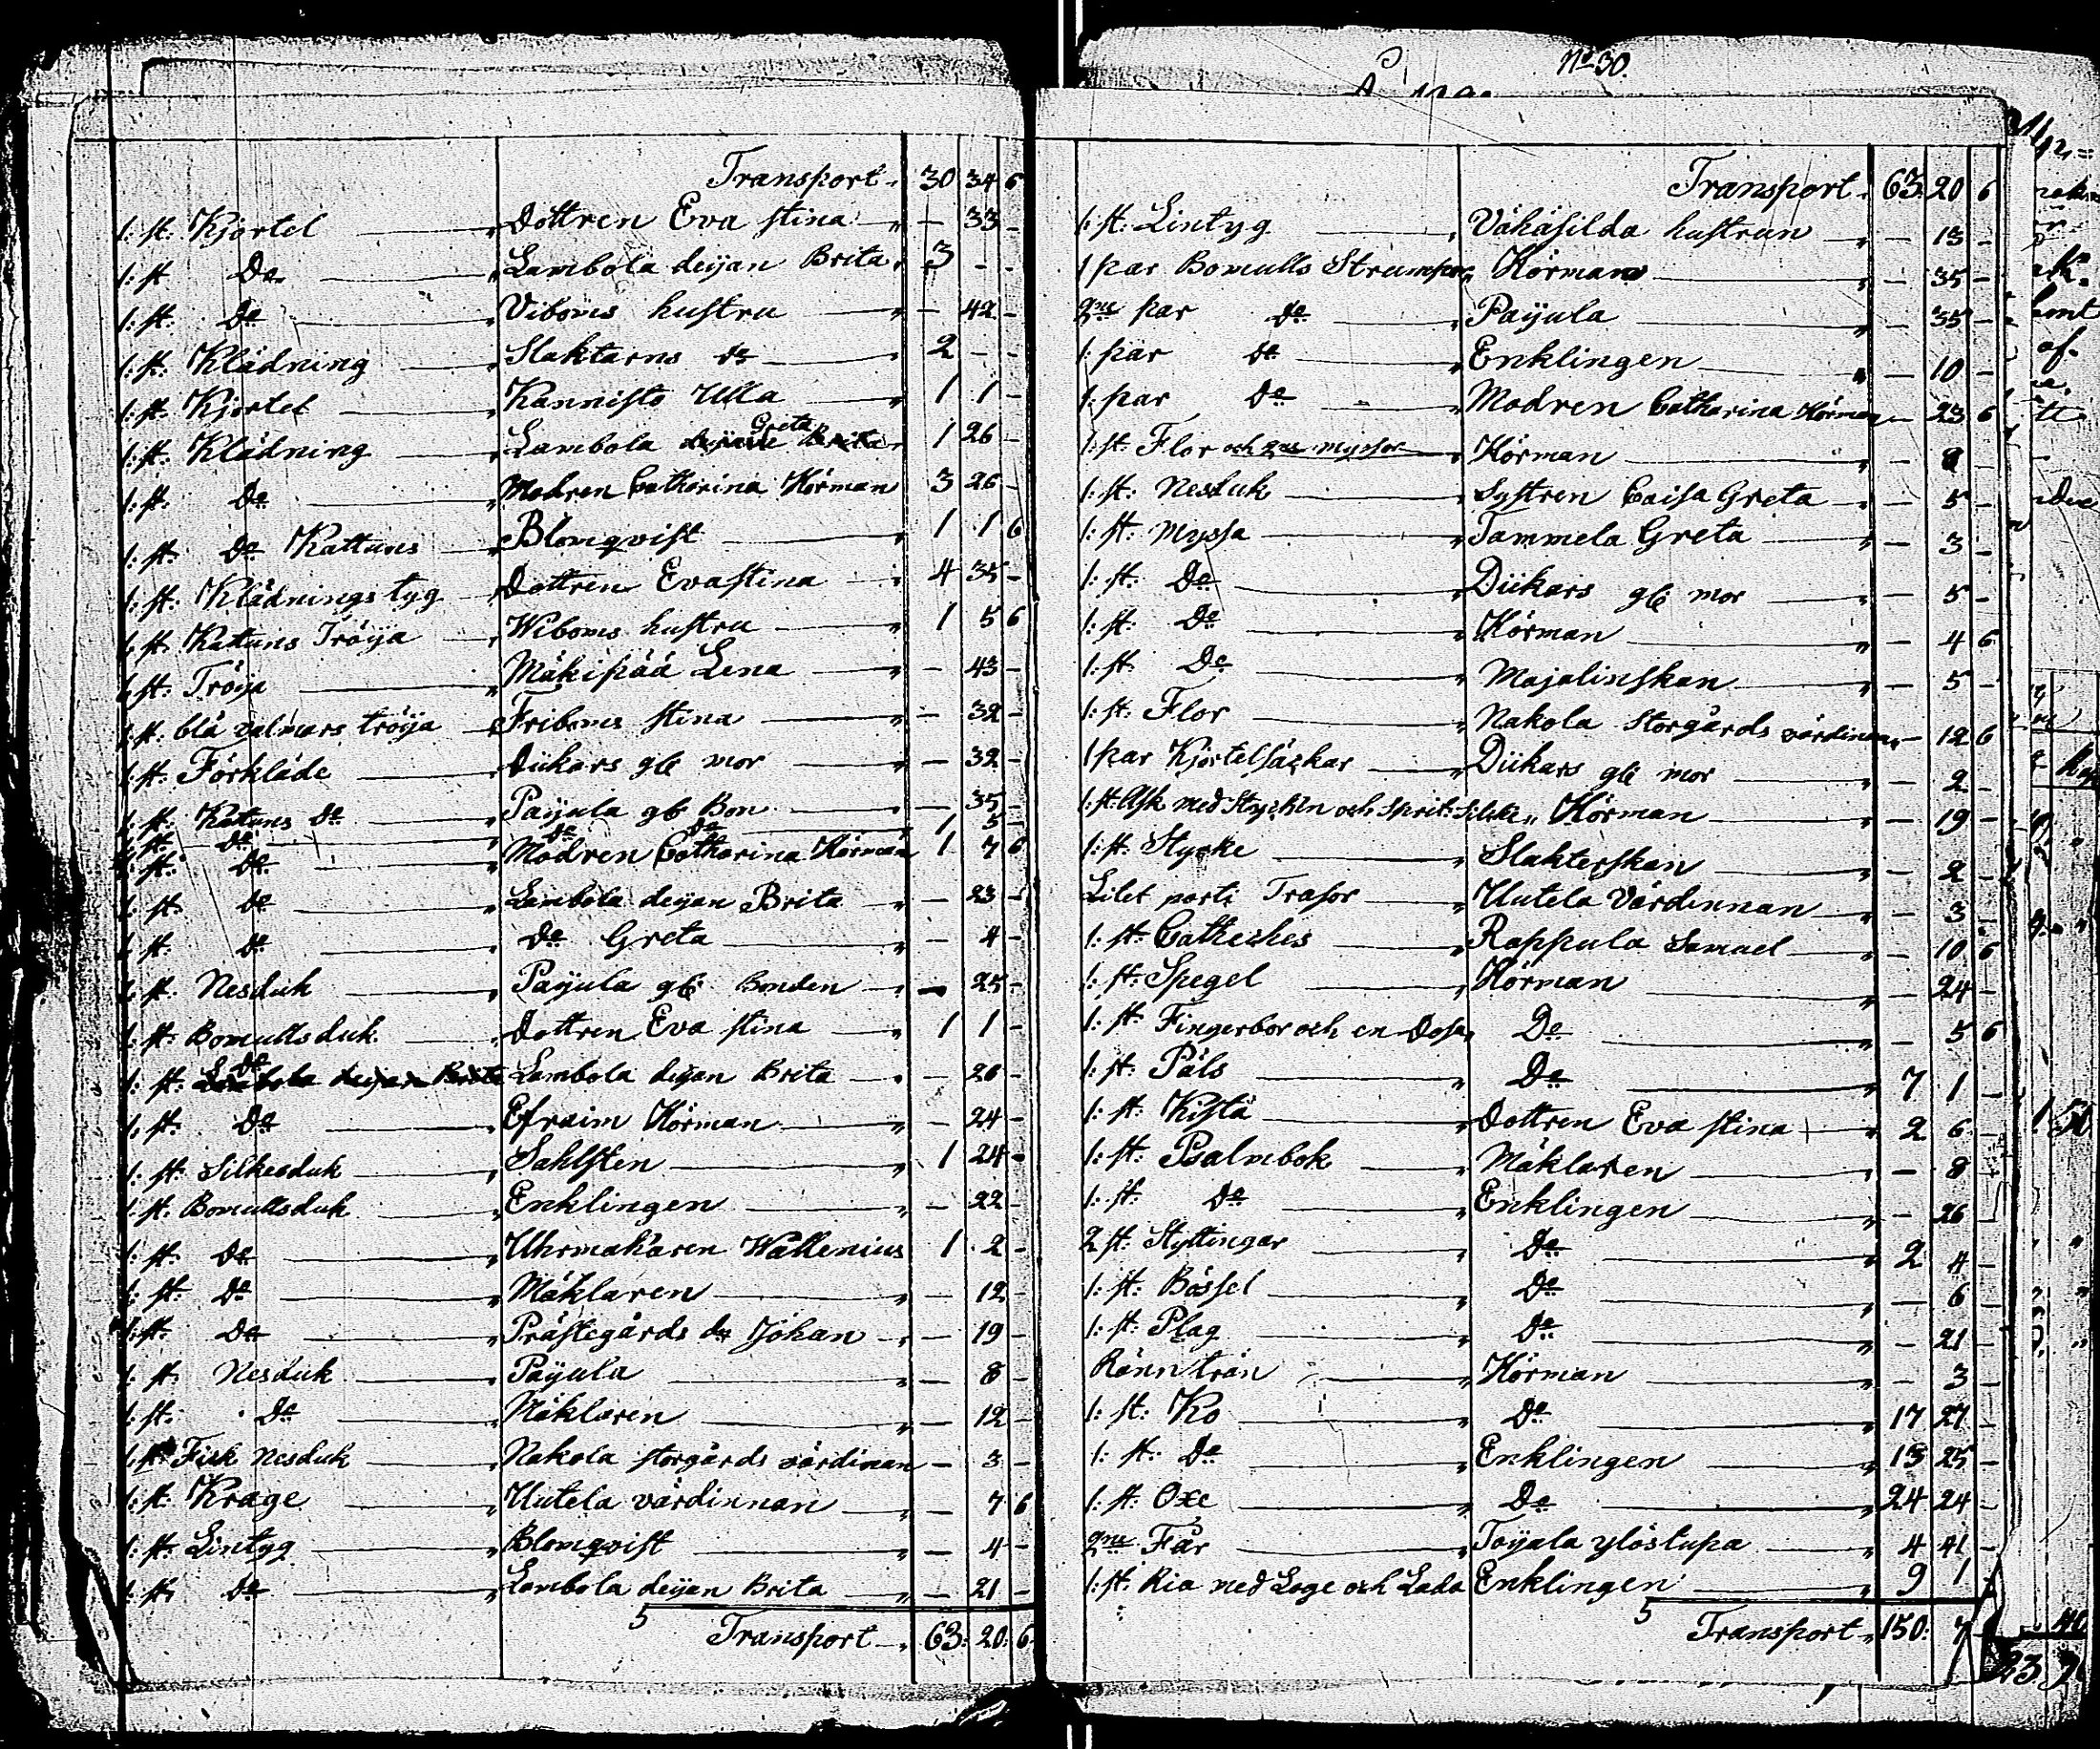 Transport 30 34 6
1: st. Kjortel Dottren Eva stina — 33 —
1: st De Lambola deijan Brita 3 — —
1: st. De Viboms hustru — 42 —
1: st. Klädning Slaktarns de 2 — —
1: st. Kjortel Kannisto Ulla 1 1 —
1: st. Klädning Lambola Greta 1 26 —
1: st. De Modren Catharina Körman 3 26 —
1: st. De Kattuns Blomqvist 1 1 6
1: st. Klädnings tyg Dottren Eva stina 4 35 —
1 st Kattuns Tröija Wiboms hustru 1 5 6
1 st. Tröija Mäkipää Lena — 43 —
1 st. blå valmars tröija Friboms stina — 32 —
1 st. Förkläde Diikars gl: mor — 32 —
1 st. Katuns De Paijula gl: Bon — 35 —
1 st. De De De 1 5 —
1 st. De Modren Catharina Körman 1 7 6
1 st. De Lambola deijan Brita — 23 —
1 st. De De Greta — 4 —
1 st. Nesduk Paijula gl: Bonden — 25 —
1: st. Bomullsduk Dottren Eva stina 1 1 —
1: st. De Lambola deijan Brita — 26 —
1. st. De Efraim Körman — 24 —
1: st. Silkesduk Sahlsten 1 24 —
1 st. Bomullsduk Enklingen — 22 —
1: st. De Uhrmakaren Wallenius 1 2 —
1: st. De Mäklaren — 12 —
1: st. De Prästegårds dr Johan — 19 —
1 st. Nesduk Paijula — 8 —
1: st. De Mäklaren — 12 —
1 st Fick Nesduk Nakola storgårds värdinnan — 3 —
1: st. Krage Uutela värdinnan — 7 6
1: st. Lintyg Blomqvist — 4 —
1 st. De Lambola deijan Brita — 21 —
5
Transport 63: 20: 6
No 30.
Transport 63: 20 6
1: st: Lintyg Vähäsilda hustrun — 13 —
1 par Bomulls Strumpor Körman — 35 —
2ne par de Paijula — 35 —
1: par de Enklingen — 10 —
1: par De Modren Catharina Körman — 23 6
1: st. Flor och 2ne myssor Körman — 9 —
1: st. Nesduk Systren Caisa Greta — 5 —
1: st. Myssa Tammela Greta — 3 —
1: st. De Diikars gl: mor — 5 —
1: st. De Körman — 4 6
1: st. De Majalinskan — 5 —
1: st. Flor Nakola Storgårds värdinnan — 12 6
1 par Kjortelsäckar Diikars gl: mor — 2 —
1: st. Ask med Stycken och Körman — 19 —
1: st. Stycke Slakterskan — 2 —
Litet parti Trasor Uutela Värdinnan — 3 —
1: st. Catheches Rappula Samuel — 10 6
1: st. Spegel Körman — 24 —
1: st. Fingerbor och en Dosa De — 5 6
1: st. Päls De 7 1 —
1: st. Kista Dottren Eva stina 2 6 —
1: st. Psalmbok Mäklaren — 8 —
1: st. De Enklingen — 26 —
2 st. Styttingar De 2 4 —
1: st. Bössel De — 6 —
1: st. Plag De — 21 —
Ränn trän Körman — 3 —
1: st. Ko De 17 27 —
1: st. De Enklingen 15 25 —
1: st. Oxe De 24 24 —
2ne Får Toijala ylöstupa 4 41 —
1: st. Ria med Loge och Lada Enklingen 9 1
5
Transport 150: 7